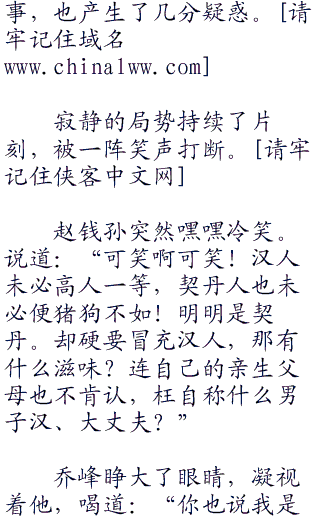 事，也产生了几分疑惑。[请
牢记住域名
www.china1ww.com]
寂静的局势持续了片
刻，被一阵笑声打断。[请牢
记住侠客中文网]
赵钱孙突然嘿嘿冷笑。
说道：“可笑啊可笑！汉人
未必高人一等，契丹人也未
必便猪狗不如！明明是契
丹。却硬要冒充汉人，那有
什么滋味？连自己的亲生父
母也不肯认，枉自称什么男
子汉、大丈夫？”
乔峰睁大了眼睛，凝视
着他，喝道：“你也说我是